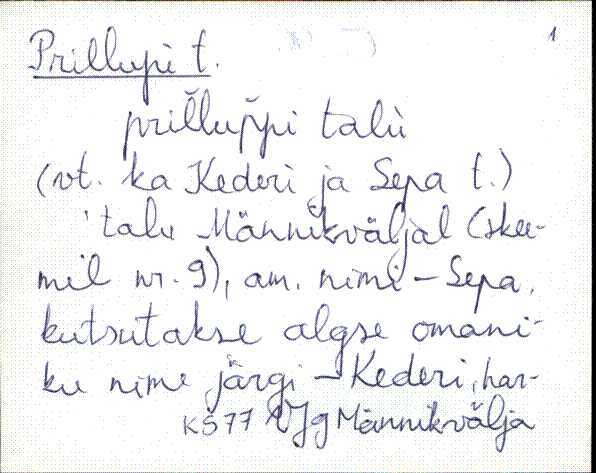 1
Prillupi t.
prilluppi talù
(vt. ka Kederi ja Sepa t.)
'talu Männikväljal (skee-
mil nr. 9), am. nimi – Sepa,
kutsutakse algse omani-
ku nime järgi – Kederi, har-
KS 77 VJg Männikvälja